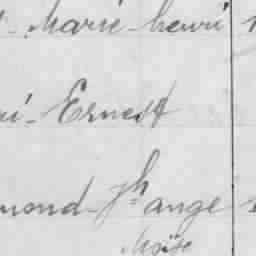 Marie-henri
ri-Ernest
mond-Jh ange
Moïse